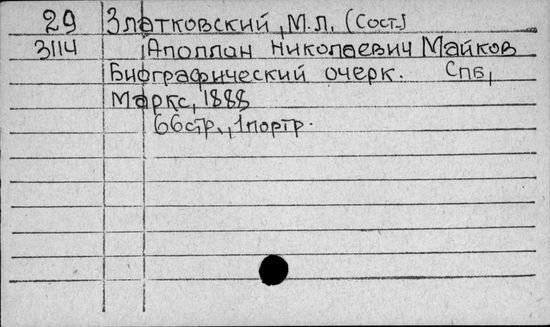 29 Златковский, М.Л. (Сост.)
3114 Аполлон Николаевич Майков
Биографический очерк. Спб,
Маркс, 1888
66стр., 1портр.